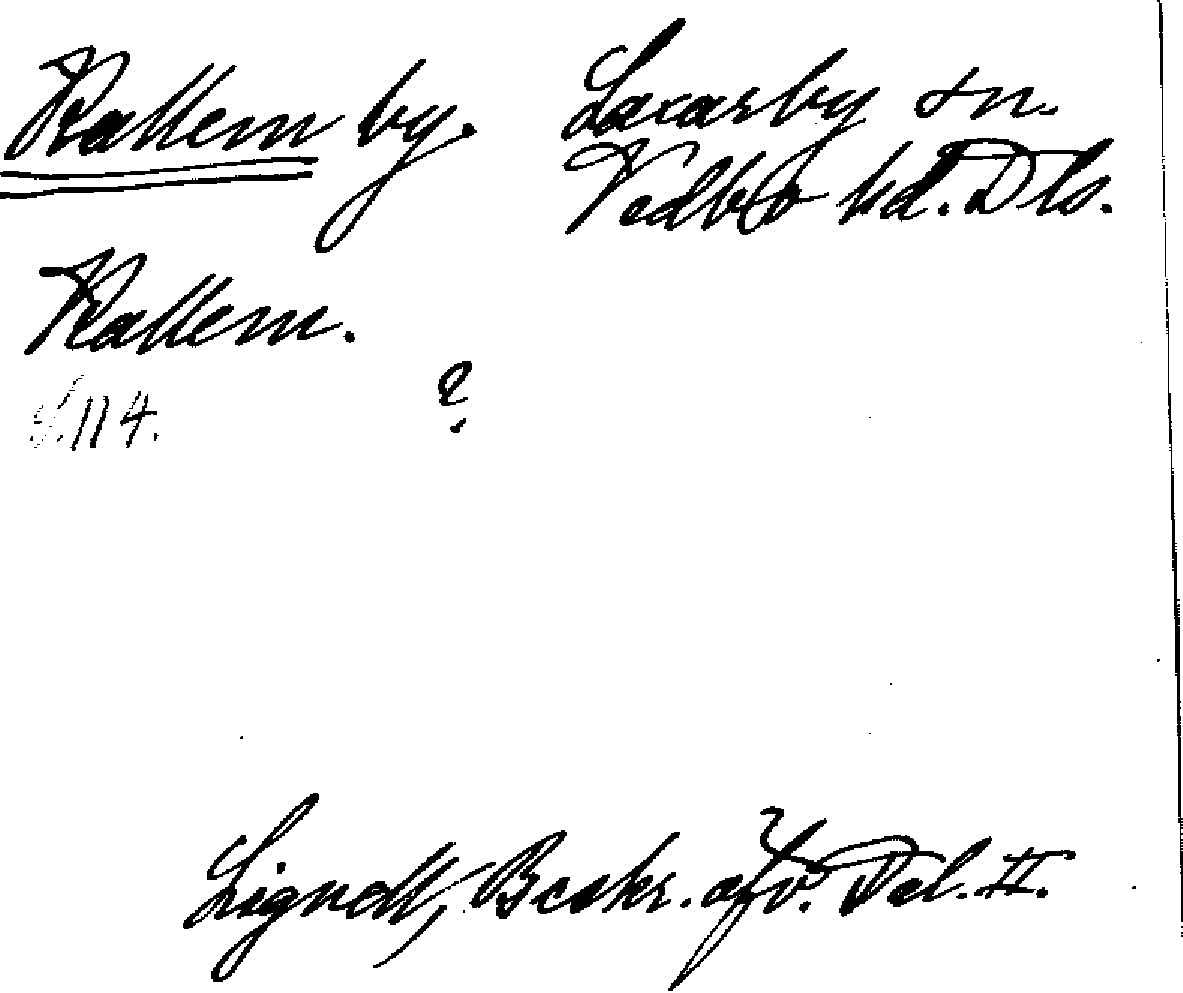 Rallem by. Laxarby sn.
Vedbo hd. Dls.
Rallem.
S. 114. ?
Lignell, Beskr. öfv. Dal. II.